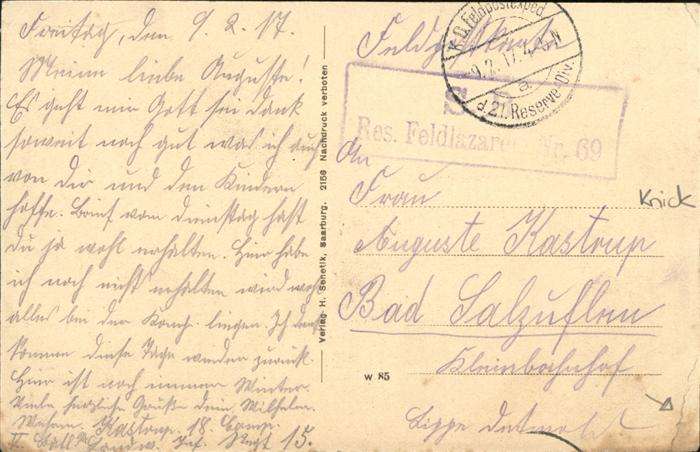 Freitag, den 9. 2. 17.
Meine liebe Auguste!
Es geht mir Gott sei Dank
soweit noch gut was ich auch
von dir und den Kindern
hoffe. Brief vom Dienstag hast
du ja wohl erhalten. Hier habe
ich noch nicht erhalten wird wohl
alles bei der Komp. liegen. Ich
kommen diese Tage wieder zurück.
Hier ist noch immer Winter.
Viele herzliche Grüße dein Wilhelm.
Kastrup. 18. Comp.
Landw. Inf. Regt 15.
Verlag H. Senetik, Saarburg. 2156 Nachdruck verboten
Feldpostkarte
K.D. Feldpostexped.
9.2.17. 4-5N
a
d. 21. Reserve-Div.
S. B.
Res. Feldlazarett Nr. 69
An
Frau
Auguste Kastrup
Bad Salzuflen
Kleinbahnhof
Lippe Detmold
w 85
Knick